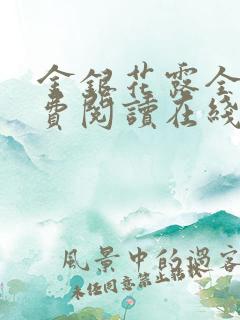 金銀花露全
費閱讀在綫
風景中的過客
未经同意禁止转载